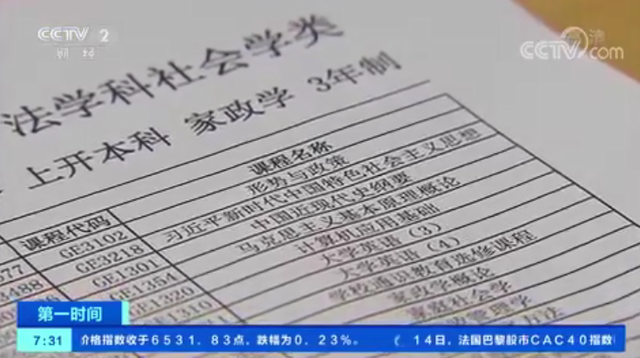 CCTV 2
财经
CCTV.com
法学科社会学类
上开本科 家政学 3年制
课程代码 课程名称
GE3102 形势与政策
GE3218 习近平新时代中国特色社会主义思想
GE1301 中国近现代史纲要
GE1354 马克思主义基本原理概论
GE1310 计算机应用基础
大学英语（3）
大学英语（4）
学校通识教育选修课程
家政学概论
家庭社会学
第一时间
7:31 价格指数收于6531．83点，跌幅为0．23%。 14日，法国巴黎股市CAC40指数